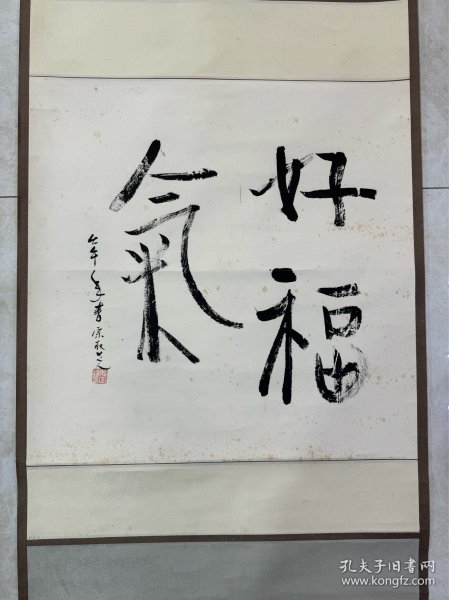 好福
氣
孔夫子旧書网
www.kongfz.com